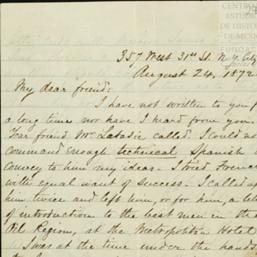 357 West 31st St. N.Y. City
August 24, 1872
My dear friend:
I have not written to you f
a long time nor have I heard from you.
Your friend Mr. Labadie called. I could no
command enough technical Spanish
convey to him my ideas. I tried French
with equal want of success. I called up
him twice and left him, or for him, a lett
of introduction to the best men in the
Oil Region, at the Metropolitan Hotel
I was at the time under the hands
CENTRO
ESTUDI
DE HISTO
DE MEXI